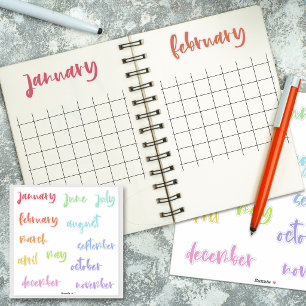 January
february
January June July
february august
march
april may september
october
december november
august
september
may
october
november
december